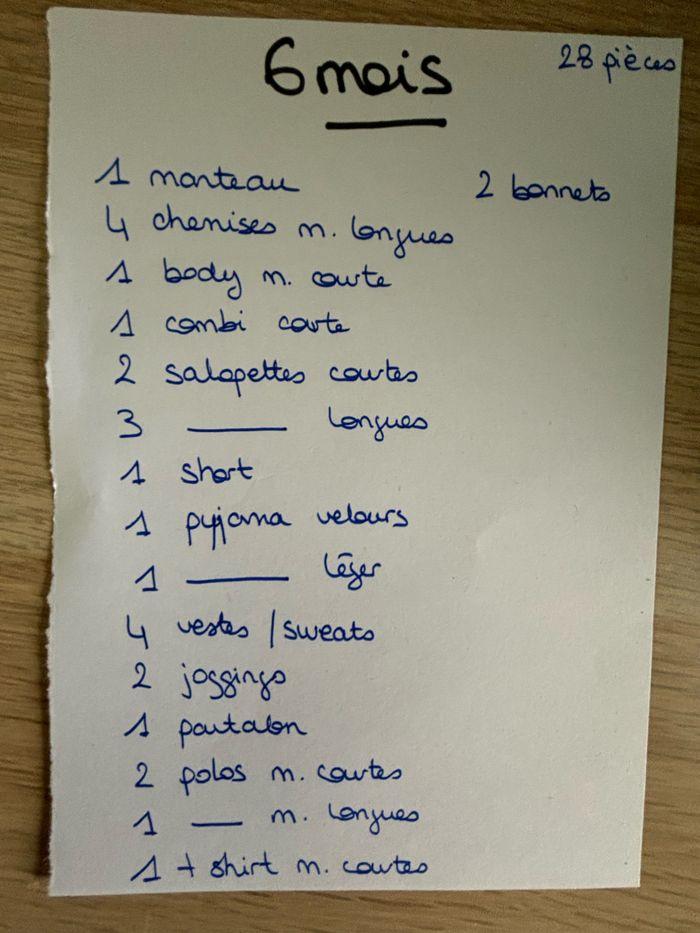 6 mois
28 pièces
1 manteau
2 bonnets
4 chemises m. longues
1 body m. courte
1 combi courte
2 salopettes courtes
3 ——— longues
1 short
1 pyjama velours
1 ——— léger
4 vestes / sweats
2 joggings
1 pantalon
2 polos m. courtes
1 —— m. longues
1 t shirt m. courtes